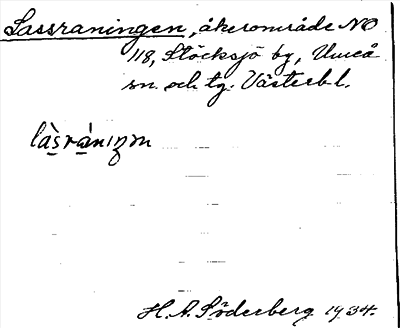 Lassraningen, åkerområde NO
118, Stöcksjö by, Umeå
sn. och tg. Västerb. l.
làsránıŋm
H. A. Söderberg 1934.